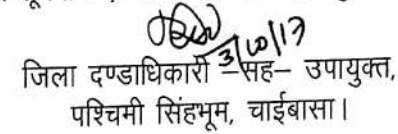 3/10/17
जिला दण्डाधिकारी –सह– उपायुक्त,
पश्चिमी सिंहभूम, चाईबासा।